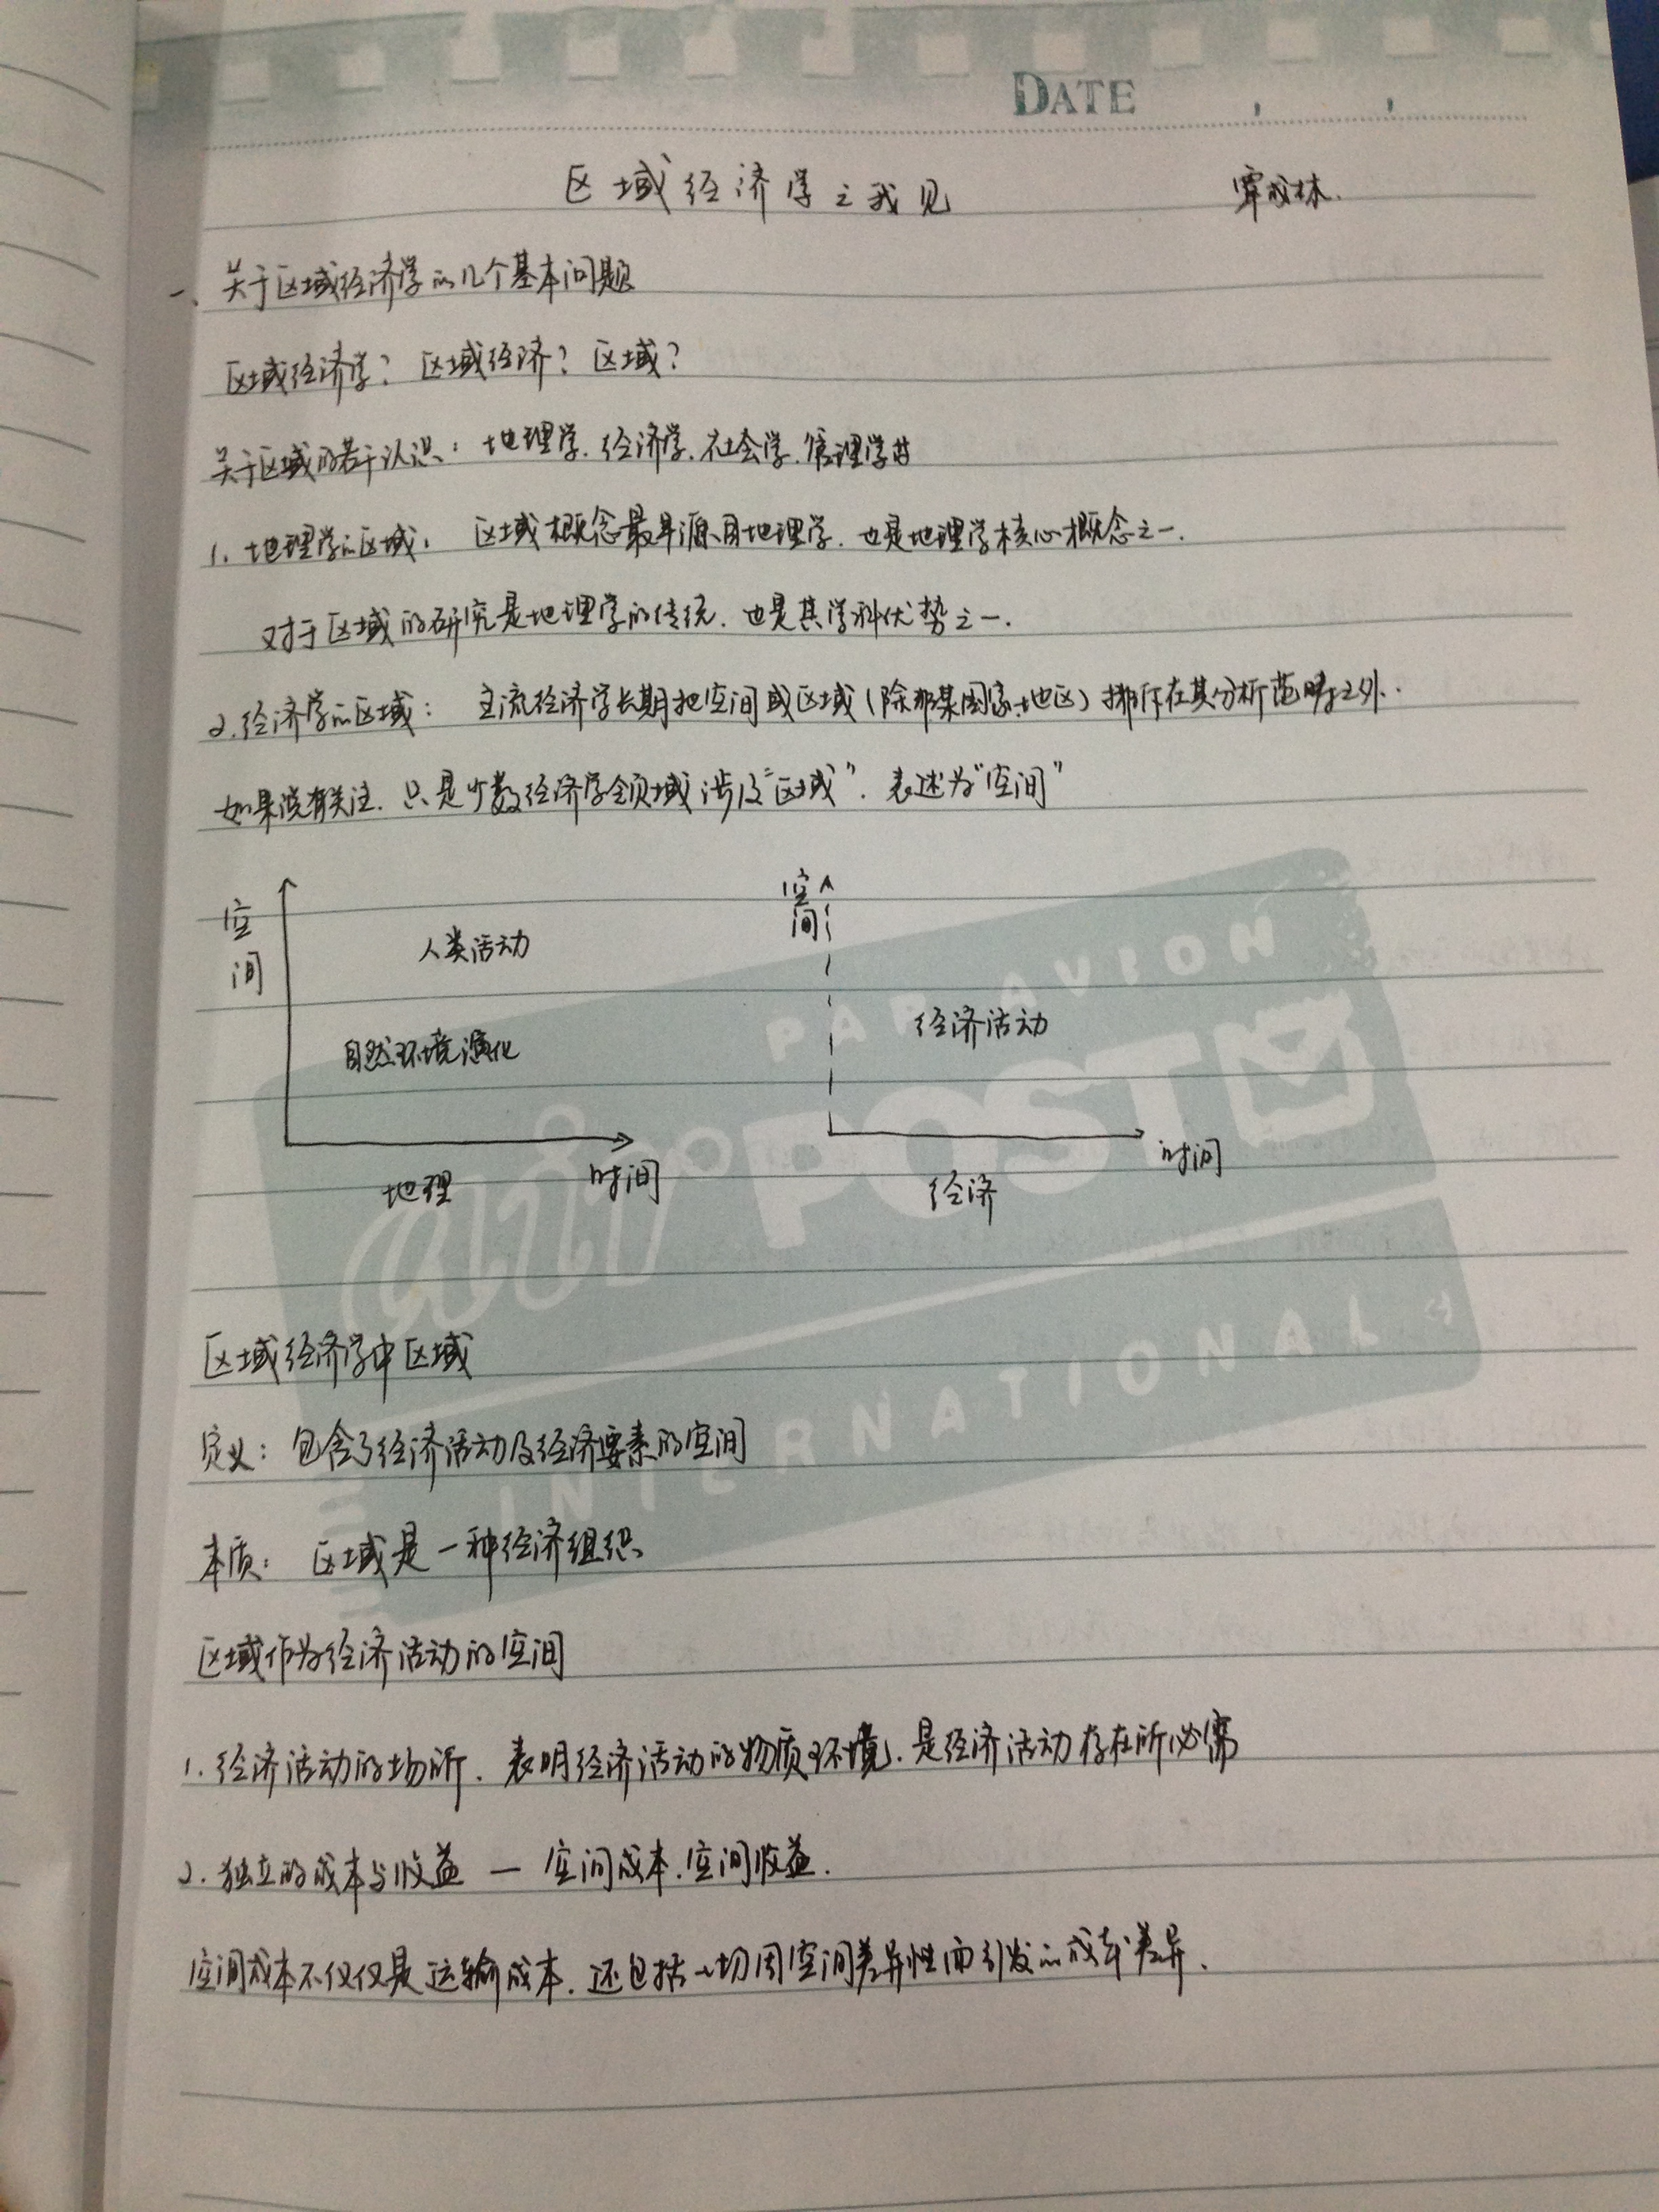 DATE
区域经济学之我见 覃成林.
一、关于区域经济学的几个基本问题
区域经济学? 区域经济? 区域?
关于区域的若干认识: 地理学.经济学.社会学.管理学等
1. 地理学的区域: 区域概念最早源自地理学.也是地理学核心概念之一.
对于区域的研究是地理学的传统.也是其学科优势之一.
2.经济学的区域: 主流经济学长期把空间或区域(除非某国家、地区)排斥在其分析范畴之外.
如果说有关注.只是少数经济学领域涉及"区域".表述为"空间"
空间 人类活动 空间
自然环境演化 经济活动
时间 时间
地理 经济
PAR AVION
air POST
INTERNATIONAL
区域经济学中区域
定义: 包含了经济活动及经济要素的空间
本质: 区域是一种经济组织
区域作为经济活动的空间
1.经济活动的场所.表明经济活动的物质环境.是经济活动存在所必需
2.独立的成本与收益 — 空间成本.空间收益.
空间成本不仅仅是运输成本.还包括一切因空间差异性而引发的成本差异.